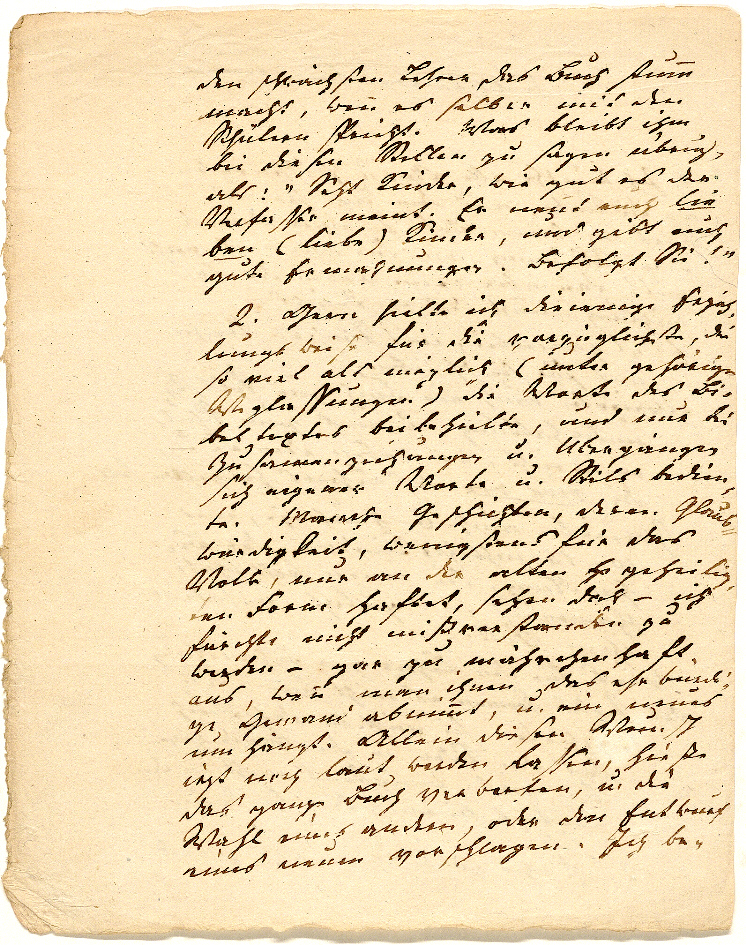 den schwächsten Lehrer das Buch stum̅
macht, wen̅ es selber mit den
Schülern spricht. Was bleibt ihm
bei diesen Stellen zu sagen übrig,
als: "Seht Kinder, wie gut es der
Verfasser meint. Er nen̅t euch lie
ben (liebe) Kinder, und gibt euch
gute Ermahnungen. Befolgt Sie!"
2. Gern hielte ich diejenige Erzäh,
lungsweise für die vorzüglichste, die
so viel als möglich (unter gehörigen
Weglassungen) die Worte des Bi-
beltextes beibehielte, und nur bei
Zusamenziehungen u. Übergängen
sich eigener Worte u. Stils bedien,
te. Manche Geschichten, deren Glaub=
würdigkeit, wenigstens für das
Volk, nur an der alten geheilig,
ten Form haftet, sehen doch – ich
fürchte nicht mißverstanden zu
werden – gar zu mährchenhaft
aus, wen̅ man ihnen das ehrwürdi,
ge Gewand abnim̅t, u. ein neues
umhängt. Allein diesen Wunsch
jezt noch laut werden lassen, hieße
das ganze Buch verwerfen, u. die
Wahl eines andern, oder den Entwurf
eines neuen vorschlagen. Ich be-